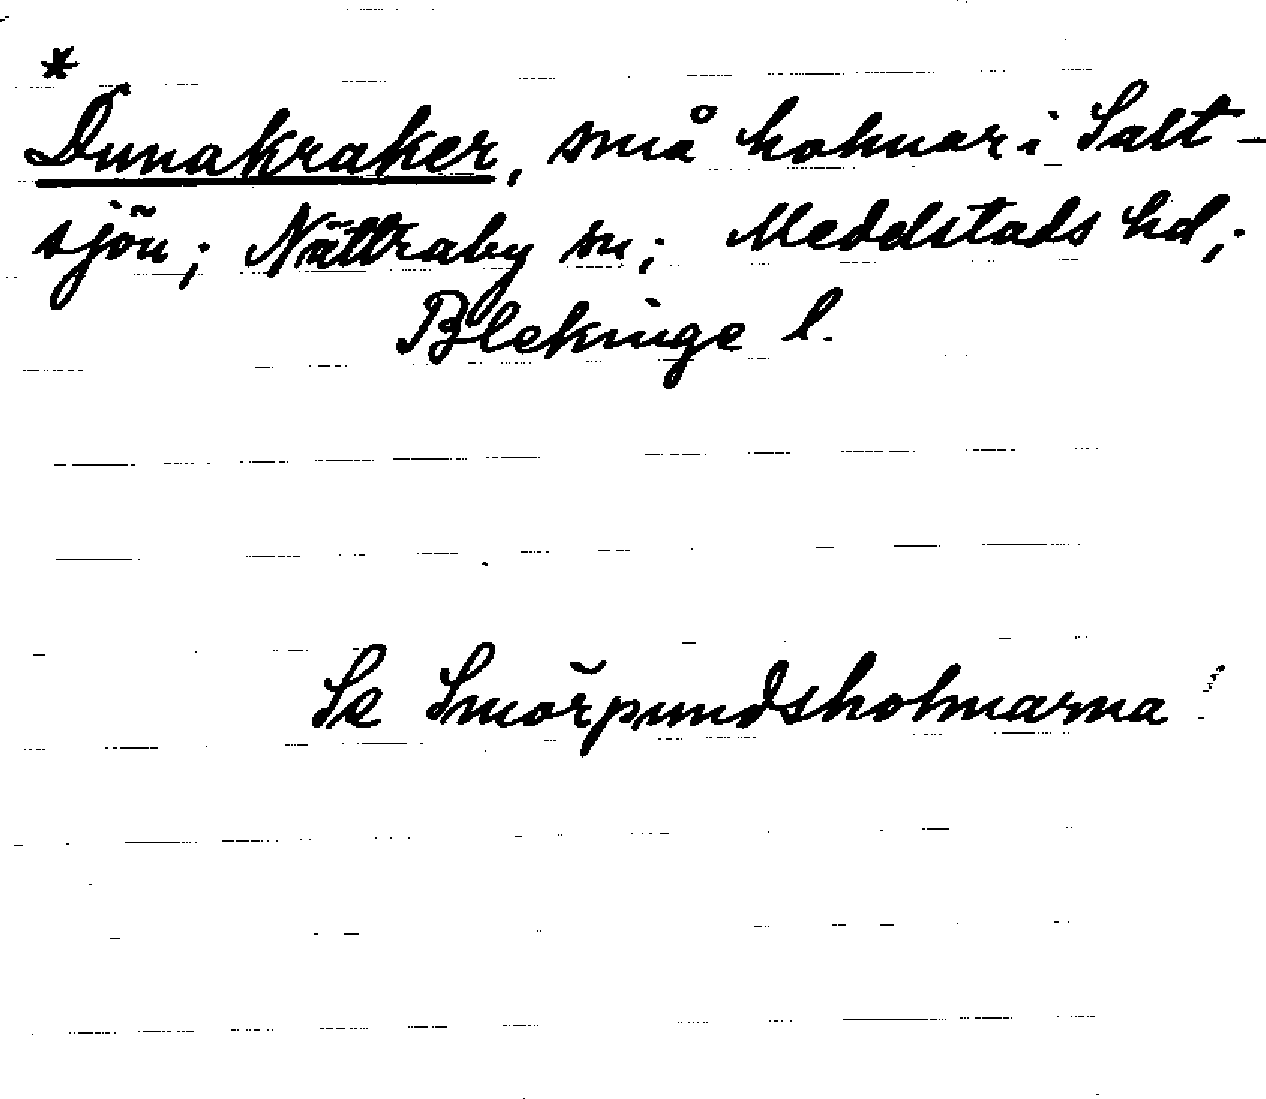 *
Dunakraker, små holmar i Salt-
sjön; Nättraby sn; Medelstads hd;
Blekinge l.
Se Smörpundsholmarna!